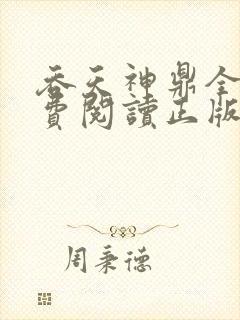 吞天神鼎全
費閱讀正版
周秉德